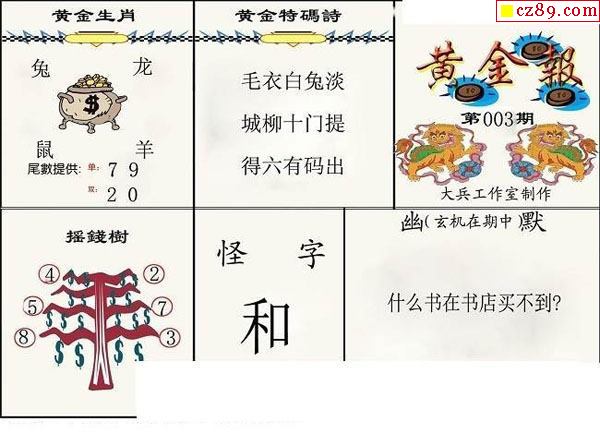 cz89.com
黄金生肖
兔 龙
$
鼠 羊
尾數提供: 单: 7 9
双: 2 0
黄金特碼詩
毛衣白兔淡
城柳十门提
得六有码出
黄金報
第003期
大兵工作室制作
摇錢樹
④ ②
⑤ ⑦
⑧ ③
$ $ $ $ $ $ $ $
怪 字
和
幽(玄机在期中)默
什么书在书店买不到?